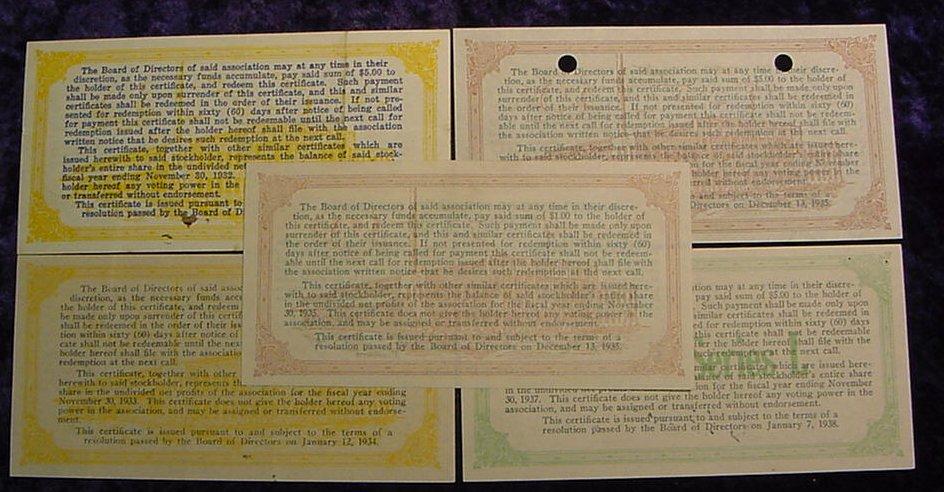 The Board of Directors of said association may at any time in their
discretion, as the necessary funds accumulate, pay said sum of $5.00 to
the holder of this certificate, and redeem this certificate. Such payment
shall be made only upon surrender of this certificate, and this and similar
certificates shall be redeemed in the order of their issuance. If not pre-
sented for redemption within sixty (60) days after notice of being called
for payment this certificate shall not be redeemable until the next call for
redemption issued after the holder hereof shall file with the association
written notice that he desires such redemption at the next call.
This certificate, together with other similar certificates which are
issued herewith to said stockholder, represents the balance of said stock-
holder's entire share in the undivided net
fiscal year ending November 30, 1932.
holder hereof any voting power in the
or transferred without endorsement.
This certificate is issued pursuant to
resolution passed by the Board of D
The Board of Directors of said association may at any time in their discre-
tion, as the necessary funds accumulate, pay said sum of $5.00 to the holder
of this certificate, and redeem this certificate. Such payment shall be made only upon
surrender of this certificate, and this and similar certificates shall be redeemed in
the order of their issuance. If not presented for redemption within sixty (60)
days after notice of being called for payment this certificate shall not be redeem-
able until the next call for redemption issued after the holder hereof shall file with
the association written notice that he desires such redemption at the next call.
This certificate, together with other similar certificates which are issued here-
with to said stockholder, represents the balance of said stockholder's entire share
for the fiscal year ending November
hereof any voting power in the
without endorsement.
and subject to the terms of a
Directors on December 13, 1935.
The Board of Directors of said association may at any time in their discre-
tion, as the necessary funds accumulate, pay said sum of $1.00 to the holder of
this certificate, and redeem this certificate. Such payment shall be made only upon
surrender of this certificate, and this and similar certificates shall be redeemed in
the order of their issuance. If not presented for redemption within sixty (60)
days after notice of being called for payment this certificate shall not be redeem-
able until the next call for redemption issued after the holder hereof shall file with
the association written notice that he desires such redemption at the next call.
This certificate, together with other similar certificates which are issued here-
with to said stockholder, represents the balance of said stockholder's entire share
in the undivided net profits of the association for the fiscal year ending November
30, 1935. This certificate does not give the holder hereof any voting power in the
association, and may be assigned or transferred without endorsement.
This certificate is issued pursuant to and subject to the terms of a
resolution passed by the Board of Directors on December 13, 1935.
The Board of Directors of said assoc
discretion, as the necessary funds accu
the holder of this certificate, and redeem
be made only upon surrender of this certif
shall be redeemed in the order of their iss
tion within sixty (60) days after notice of
cate shall not be redeemable until the next
holder hereof shall file with the associatio
redemption at the next call.
This certificate, together with other
herewith to said stockholder, represents th
share in the undivided net profits of the association for the fiscal year ending
November 30, 1933. This certificate does not give the holder hereof any voting
power in the association, and may be assigned or transferred without endorse-
ment.
This certificate is issued pursuant to and subject to the terms of a
resolution passed by the Board of Directors on January 12, 1934.
ation may at any time in their discre-
pay said sum of $5.00 to the holder of
Such payment shall be made only upon
similar certificates shall be redeemed in
ed for redemption within sixty (60) days
this certificate shall not be redeemable
ter the holder hereof shall file with the
such redemption at the next call.
similar certificates, which are issued here-
balance of said stockholder's entire share
in the undivided net profits of the association for the fiscal year ending November
30, 1937. This certificate does not give the holder hereof any voting power in the
association, and may be assigned or transferred without endorsement.
This certificate is issued pursuant to and subject to the terms of a
resolution passed by the Board of Directors on January 7, 1938.